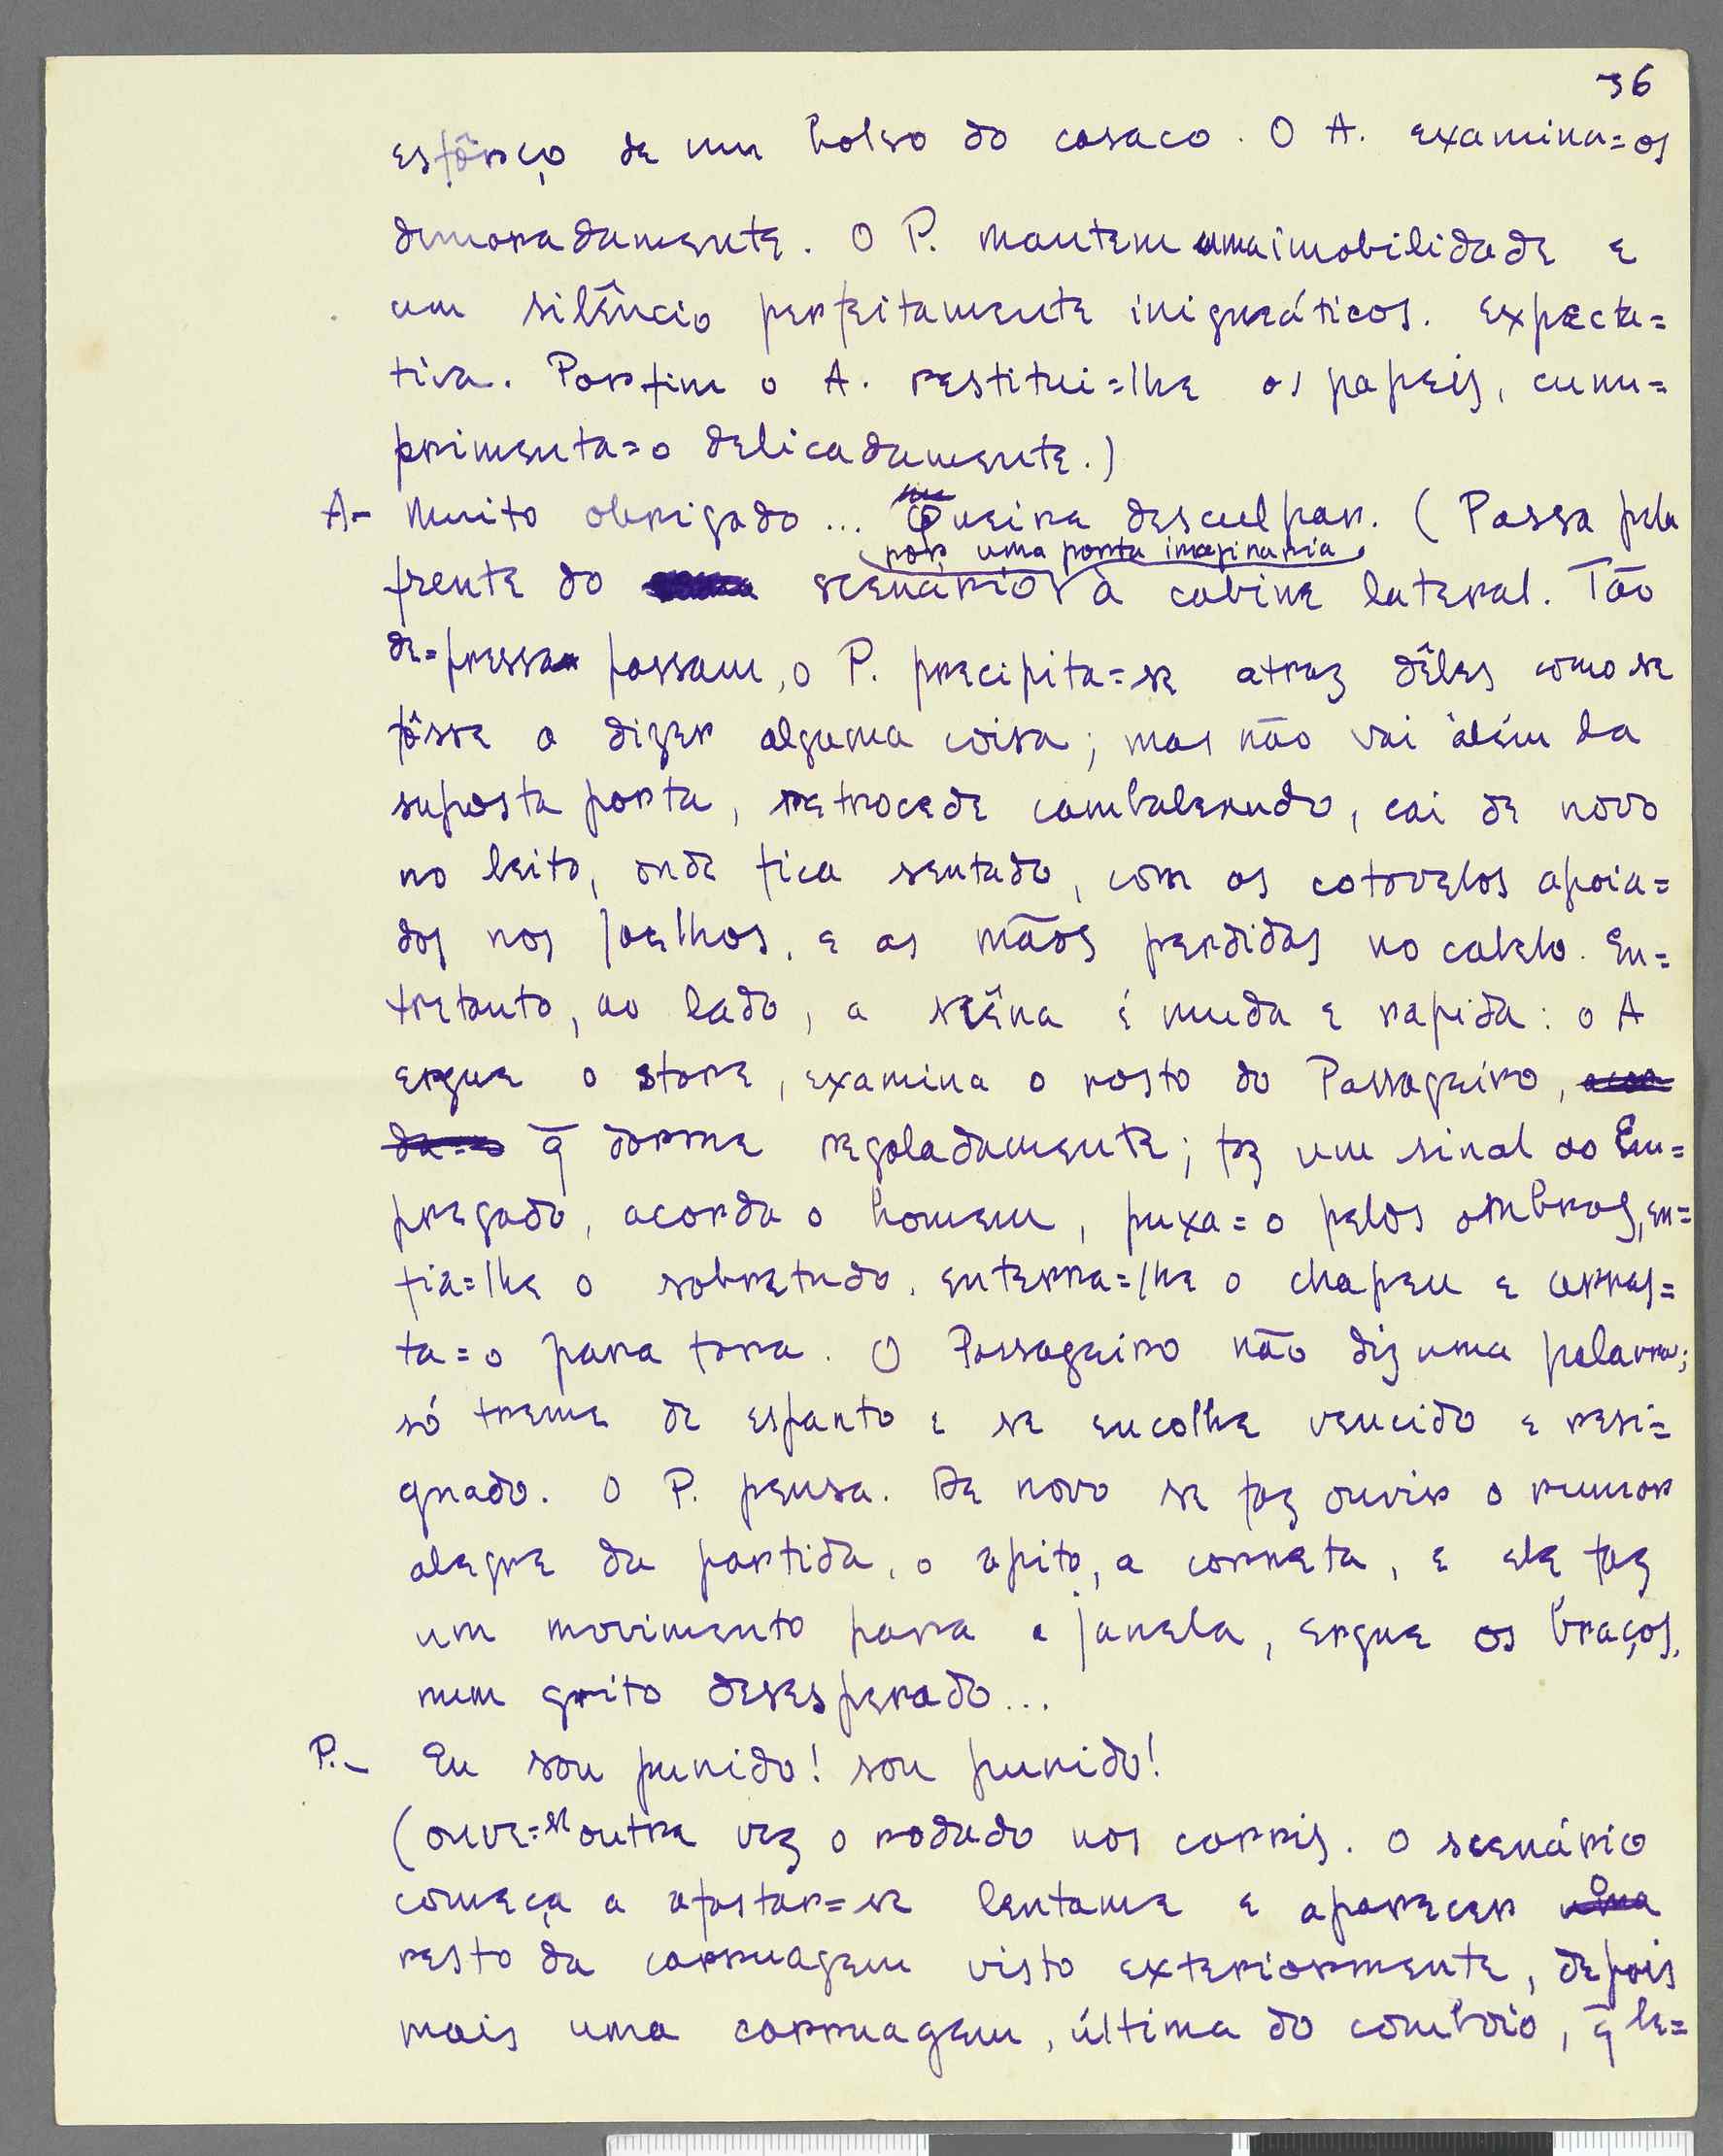 36
esfôrço de um bolso do casaco. O A. examina=os
demoradamente. O P. mantem uma imobilidade e
um silêncio perfeitamente inigmáticos. Expecta=
tiva. Porfim o A. restitui=lhe os papeis, cum=
primenta=o delicadamente.)
A- Muito obrigado... Queira desculpar. (Passa pela
por uma porta imaginaria
frente do scenário à cabine lateral. Tão
de=pressa passam, o P. precipita=se atraz dêles como se
fôsse a dizer alguma coisa; mas não vai àlém da
suposta porta, retrocede cambaleando, cai de novo
no leito, onde fica sentado, com os cotovelos apoia=
dos nos joelhos, e as mãos perdidas no cabelo. En=
tretanto, ao lado, a scêna é muda e rapida: o A
ergue o store, examina o rosto do Passageiro, acor
da=o q̃ dorme regaladamente; faz um sinal ao Em=
pregado, acorda o homem, puxa=o pelos ombros, en=
fia=lhe o sobretudo, enterra=lhe o chapeu e arras=
ta=o para fora. O Passageiro não diz uma palavra;
só treme de espanto e se encolhe vencido e resi=
gnado. O P. pensa. De novo se faz ouvir o rumor
alegre da partida, o apito, a corneta, e ele faz
um movimento para a janela, ergue os braços,
num grito desesperado...
P.- Eu sou punido! sou punido!
(ouve=se outra vez o rodado nos carris. O scenário
começa a afastar=se lentame e aparecer uma o
resto da carruagem visto exteriormente, depois
mais uma carruagem, última do comboio, q̃ le=